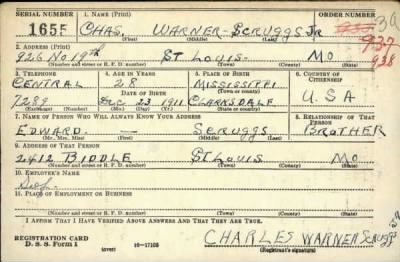 SERIAL NUMBER 1. NAME (Print) ORDER NUMBER
165F CHAS. WARNER - SCRUGGS JR
(First) (Middle) (Last)
2. ADDRESS (Print) 937
926 No 19th ST LOUIS. MO 938
(Number and street or R. F. D. number) (Town) (County) (State)
3. TELEPHONE 4. AGE IN YEARS 5. PLACE OF BIRTH 6. COUNTRY OF CITIZENSHIP
CENTRAL 28 MISSISSIPPI
DATE OF BIRTH (Town or county)
7289 DEC 23 1911 CLARKSDALE U.S.A
(Exchange) (Number) (Mo.) (Day) (Yr.) (State or country)
7. NAME OF PERSON WHO WILL ALWAYS KNOW YOUR ADDRESS 8. RELATIONSHIP OF THAT PERSON
EDWARD - SCRUGGS BROTHER
(Mr., Mrs., Miss) (First) (Middle) (Last)
9. ADDRESS OF THAT PERSON
2412 BIDDLE ST LOUIS MO
(Number and street or R. F. D. number) (Town) (County) (State)
10. EMPLOYER'S NAME
Self
11. PLACE OF EMPLOYMENT OR BUSINESS
(Number and street or R. F. D. number) (Town) (County) (State)
I AFFIRM THAT I HAVE VERIFIED ABOVE ANSWERS AND THAT THEY ARE TRUE.
REGISTRATION CARD
D. S. S. Form 1 (over) 16-17105 CHARLES WARNER SCRUGGS
(Registrant's signature)